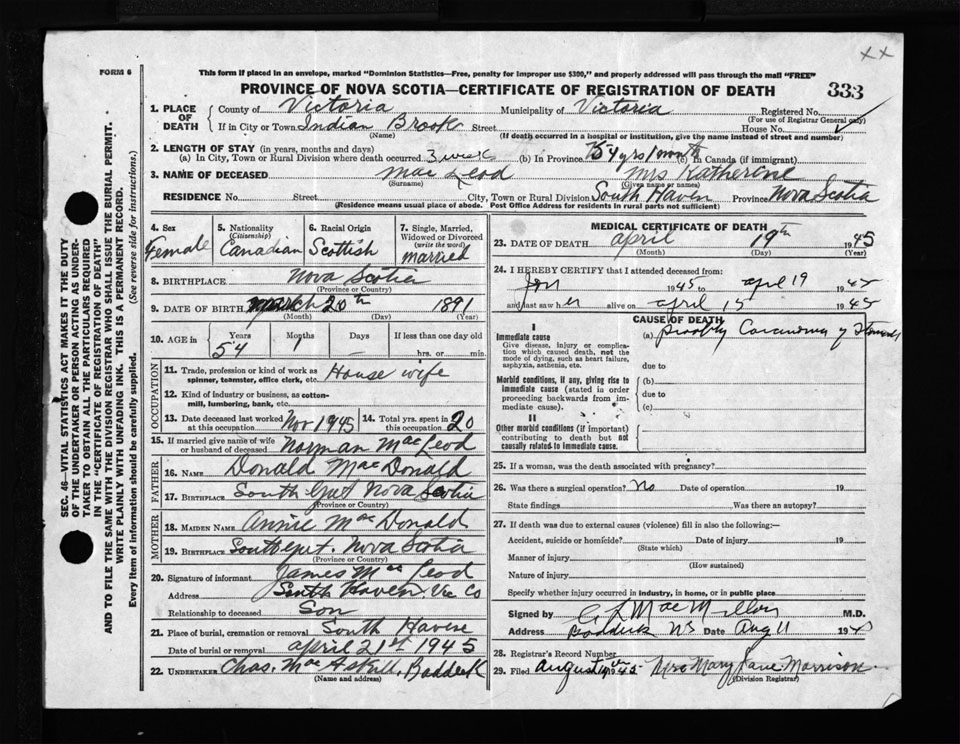 XX
FORM 6
This form if placed in an envelope, marked "Dominion Statistics—Free, penalty for improper use $300," and properly addressed will pass through the mail "FREE"
PROVINCE OF NOVA SCOTIA—CERTIFICATE OF REGISTRATION OF DEATH 333
SEC. 46—VITAL STATISTICS ACT MAKES IT THE DUTY
OF THE UNDERTAKER OR PERSON ACTING AS UNDER-
TAKER TO OBTAIN ALL THE PARTICULARS REQUIRED
IN THE "CERTIFICATE OF REGISTRATION OF DEATH"
AND TO FILE THE SAME WITH THE DIVISION REGISTRAR WHO SHALL ISSUE THE BURIAL PERMIT.
WRITE PLAINLY WITH UNFADING INK. THIS IS A PERMANENT RECORD.
Every item of information should be carefully supplied. (See reverse side for instructions.)
1. PLACE OF DEATH County of Victoria Municipality of Victoria Registered No.
(For use of Registrar General only)
If in City or Town Indian Brook Street House No.
(Name) (If death occurred in a hospital or institution, give the name instead of street and number)
2. LENGTH OF STAY (in years, months and days)
(a) In City, Town or Rural Division where death occurred 3 weeks (b) In Province 54 yrs 1 month (c) In Canada (if immigrant)
3. NAME OF DECEASED Mac Leod Mrs Katherine
(Surname) (Given name or names)
RESIDENCE No. Street City, Town or Rural Division South Haven Province Nova Scotia
(Residence means usual place of abode. Post Office Address for residents in rural parts not sufficient)
4. Sex Female
5. Nationality (Citizenship) Canadian
6. Racial Origin Scottish
7. Single, Married, Widowed or Divorced (write the word) married
8. BIRTHPLACE Nova Scotia
(Province or Country)
9. DATE OF BIRTH March 20th 1891
(Month) (Day) (Year)
10. AGE in Years 54 Months 1 Days — If less than one day old hrs. or min.
OCCUPATION
11. Trade, profession or kind of work as spinner, teamster, office clerk, etc. House wife
12. Kind of industry or business, as cotton-mill, lumbering, bank, etc.
13. Date deceased last worked at this occupation Nov 1945 14. Total yrs. spent in this occupation 20
15. If married give name of wife or husband of deceased Norman MacLeod
FATHER
16. NAME Donald MacDonald
17. BIRTHPLACE South Gut Nova Scotia
(Province or Country)
MOTHER
18. MAIDEN NAME Annie MacDonald
19. BIRTHPLACE South Gut. Nova Scotia
(Province or Country)
20. Signature of informant James MacLeod
Address South Haven Vic Co
Relationship to deceased Son
21. Place of burial, cremation or removal South Haven
Date of burial or removal April 21st 1945
22. UNDERTAKER Chas. MacAskill, Baddeck
(Name and address)
MEDICAL CERTIFICATE OF DEATH
23. DATE OF DEATH April 19th 1945
(Month) (Day) (Year)
24. I HEREBY CERTIFY that I attended deceased from:
Jan 1945 to apl 19 1945
and last saw her alive on april 15 1945
CAUSE OF DEATH
I
Immediate cause
Give disease, injury or complication which caused death, not the mode of dying, such as heart failure, asphyxia, asthenia, etc.
(a) probly Carcinoma of Stomach
due to
Morbid conditions, if any, giving rise to immediate cause (stated in order proceeding backwards from immediate cause).
(b)
due to
(c)
II
Other morbid conditions (if important) contributing to death but not causally related to immediate cause.
25. If a woman, was the death associated with pregnancy?
26. Was there a surgical operation? No Date of operation 19
State findings Was there an autopsy?
27. If death was due to external causes (violence) fill in also the following:—
Accident, suicide or homicide? Date of injury 19
(State which)
Manner of injury
(How sustained)
Nature of injury
Specify whether injury occurred in industry, in home, or in public place
Signed by C L MacMillan M.D.
Address Baddeck NS Date Aug 11 1945
28. Registrar's Record Number
29. Filed August 1945 Mrs Mary Jane Morrison
(Division Registrar)